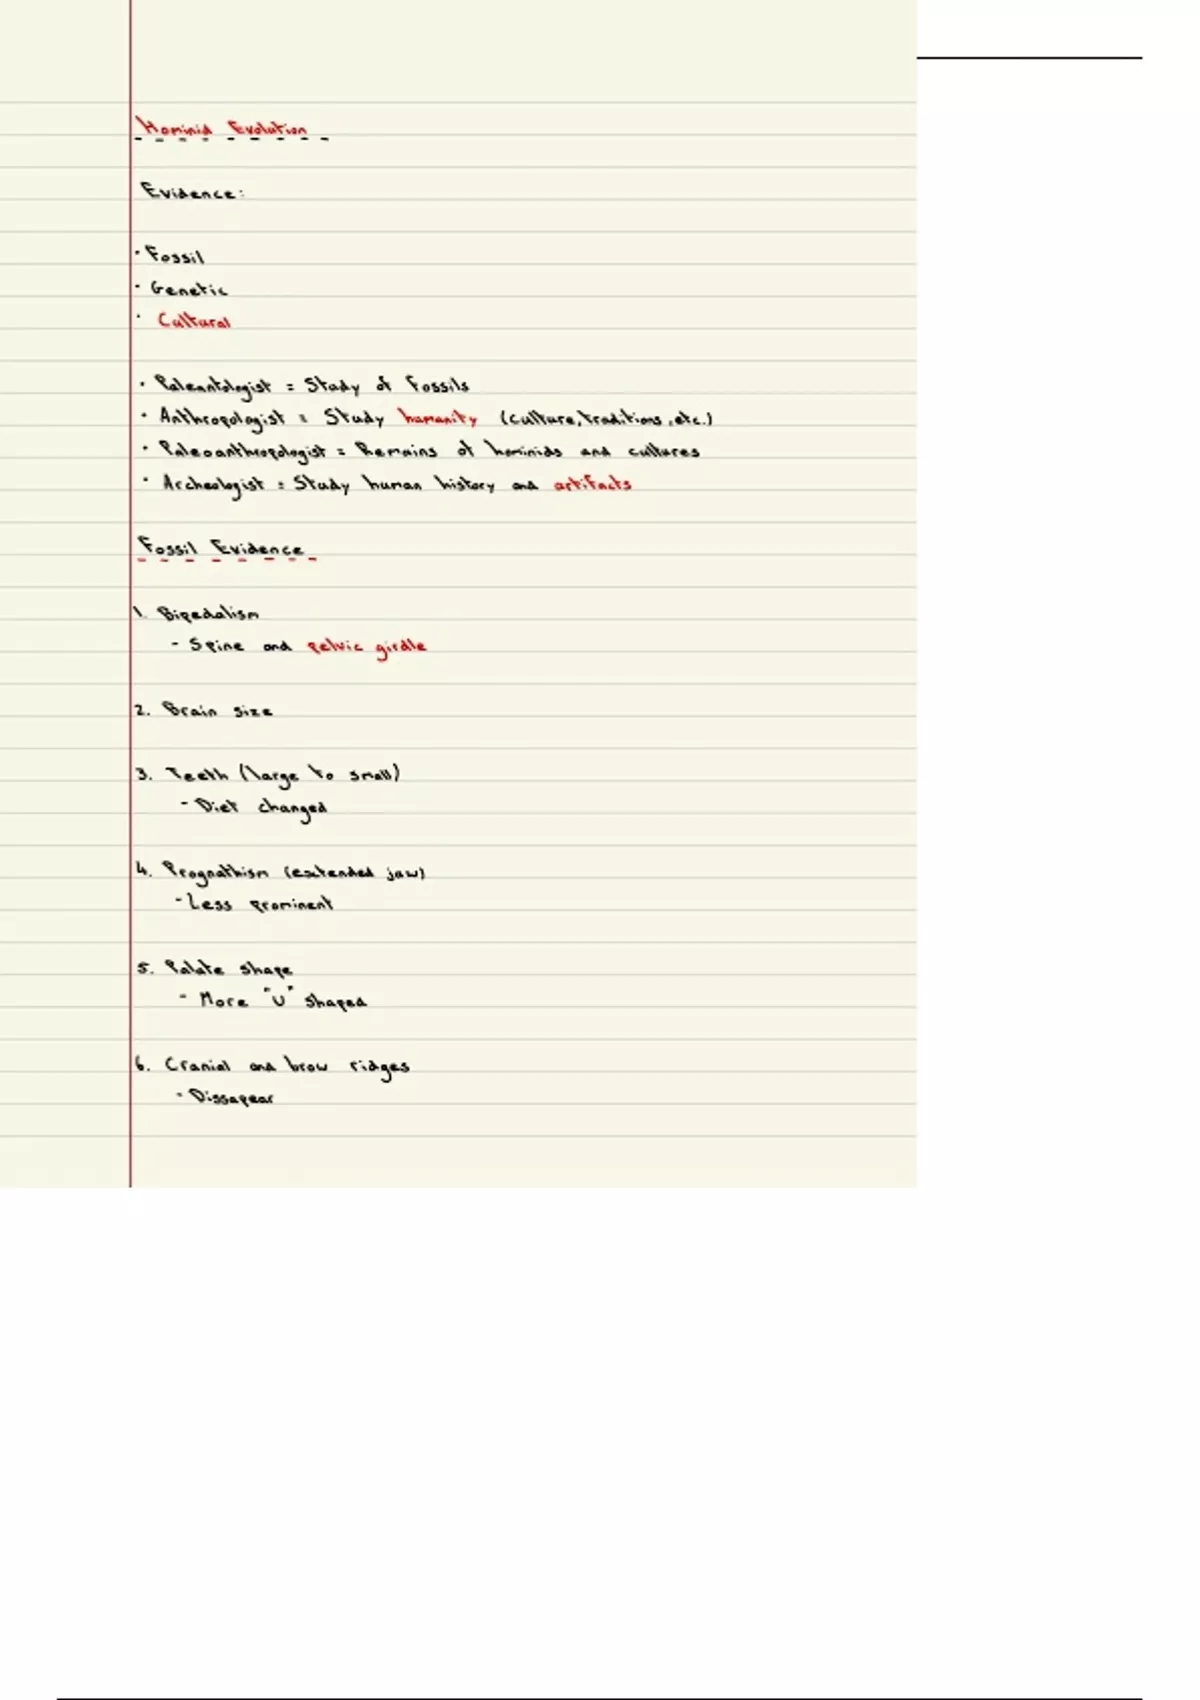 Hominid Evolution
Evidence:
· Fossil
· Genetic
· Cultural
· Paleantologist = Study of Fossils
· Anthropologist = Study humanity (culture, traditions, etc.)
· Paleoanthropologist = Remains of hominids and cultures
· Archeologist = Study human history and artifacts
Fossil Evidence
1. Bipedalism
- Spine and pelvic girdle
2. Brain size
3. Teeth (large to small)
- Diet changed
4. Prognathism (extended jaw)
- Less prominent
5. Palate shape
- More "U" shaped
6. Cranial and brow ridges
- Dissapear